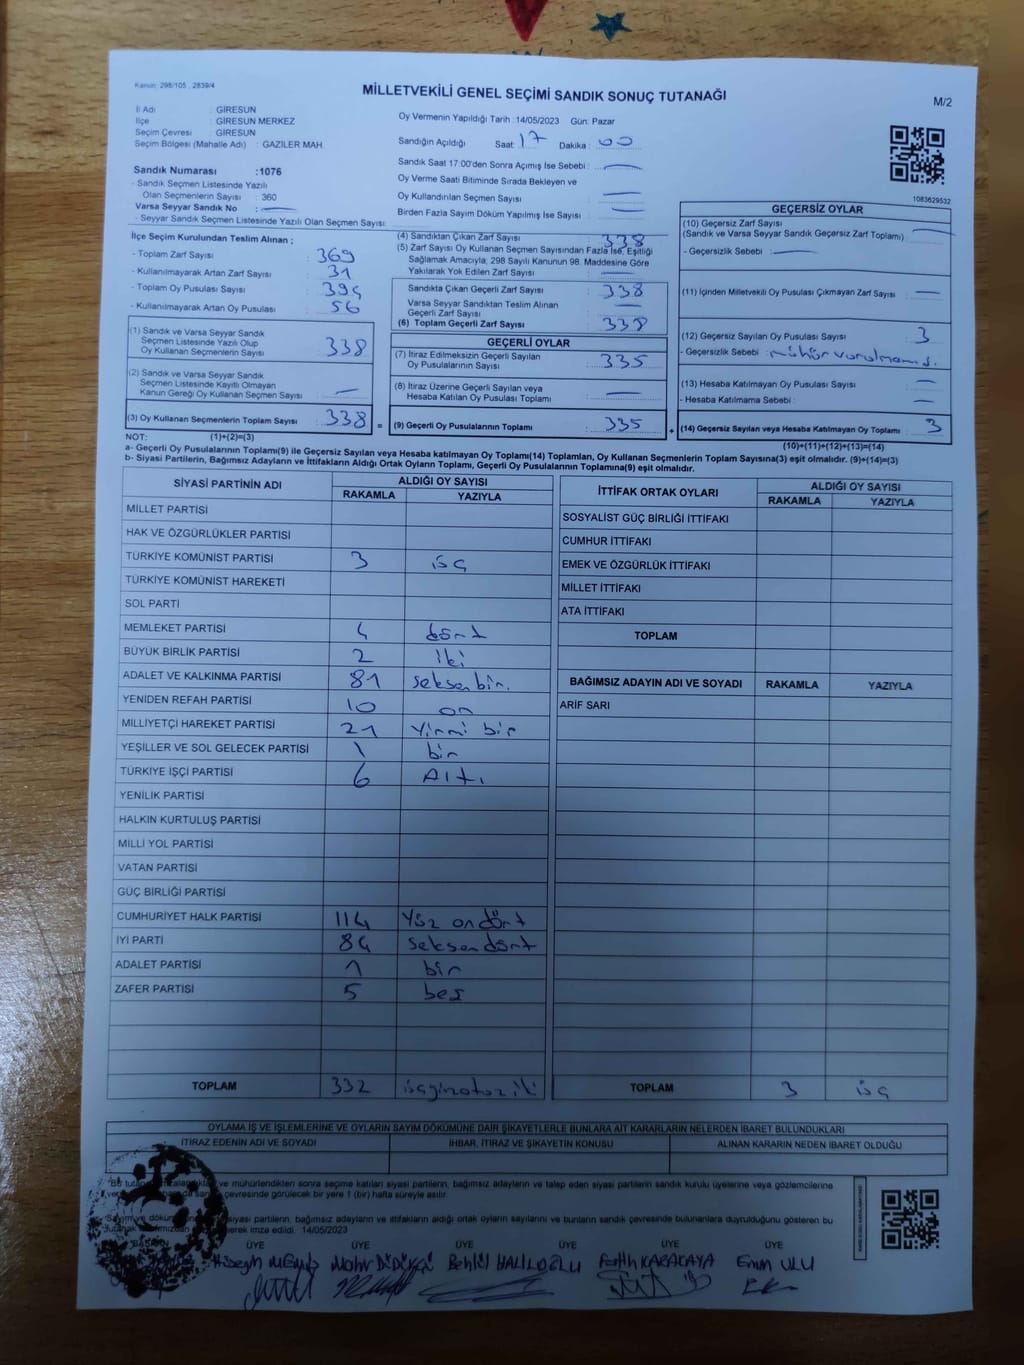 Kanun: 298/105 , 2839/4
MİLLETVEKİLİ GENEL SEÇİMİ SANDIK SONUÇ TUTANAĞI
M/2
İl Adı : GİRESUN
İlçe : GİRESUN MERKEZ
Seçim Çevresi : GİRESUN
Seçim Bölgesi (Mahalle Adı) : GAZİLER MAH.
Oy Vermenin Yapıldığı Tarih : 14/05/2023 Gün: Pazar
Sandığın Açıldığı Saat : 17 Dakika : 00
Sandık Saat 17:00'den Sonra Açımış İse Sebebi :
Oy Verme Saati Bitiminde Sırada Bekleyen ve
Oy Kullandırılan Seçmen Sayısı :
Birden Fazla Sayım Döküm Yapılmış İse Sayısı :
Sandık Numarası :1076
- Sandık Seçmen Listesinde Yazılı
Olan Seçmenlerin Sayısı : 360
Varsa Seyyar Sandık No :
- Seyyar Sandık Seçmen Listesinde Yazılı Olan Seçmen Sayısı:
1083629532
İlçe Seçim Kurulundan Teslim Alınan ;
- Toplam Zarf Sayısı : 369
- Kullanılmayarak Artan Zarf Sayısı : 31
- Toplam Oy Pusulası Sayısı : 394
- Kullanılmayarak Artan Oy Pusulası : 56
(1) Sandık ve Varsa Seyyar Sandık
Seçmen Listesinde Yazılı Olup
Oy Kullanan Seçmenlerin Sayısı : 338
(2) Sandık ve Varsa Seyyar Sandık
Seçmen Listesinde Kayıtlı Olmayan
Kanun Gereği Oy Kullanan Seçmen Sayısı :
(3) Oy Kullanan Seçmenlerin Toplam Sayısı : 338 =
(4) Sandıktan Çıkan Zarf Sayısı : 338
(5) Zarf Sayısı Oy Kullanan Seçmen Sayısından Fazla İse, Eşitliği
Sağlamak Amacıyla, 298 Sayılı Kanunun 98. Maddesine Göre
Yakılarak Yok Edilen Zarf Sayısı :
Sandıkta Çıkan Geçerli Zarf Sayısı : 338
Varsa Seyyar Sandıktan Teslim Alınan
Geçerli Zarf Sayısı :
(6) Toplam Geçerli Zarf Sayısı : 338
GEÇERLİ OYLAR
(7) İtiraz Edilmeksizin Geçerli Sayılan
Oy Pusulalarının Sayısı : 335
(8) İtiraz Üzerine Geçerli Sayılan veya
Hesaba Katılan Oy Pusulası Toplamı :
(9) Geçerli Oy Pusulalarının Toplamı : 335 +
GEÇERSİZ OYLAR
(10) Geçersiz Zarf Sayısı
(Sandık ve Varsa Seyyar Sandık Geçersiz Zarf Toplamı) :
- Geçersizlik Sebebi :
(11) İçinden Milletvekili Oy Pusulası Çıkmayan Zarf Sayısı :
(12) Geçersiz Sayılan Oy Pusulası Sayısı : 3
- Geçersizlik Sebebi :
(13) Hesaba Katılmayan Oy Pusulası Sayısı :
- Hesaba Katılmama Sebebi :
(14) Geçersiz Sayılan veya Hesaba Katılmayan Oy Toplamı : 3
NOT: (1)+(2)=(3)
(10)+(11)+(12)+(13)=(14)
a- Geçerli Oy Pusulalarının Toplamı(9) ile Geçersiz Sayılan veya Hesaba katılmayan Oy Toplamı(14) Toplamları, Oy Kullanan Seçmenlerin Toplam Sayısına(3) eşit olmalıdır. (9)+(14)=(3)
b- Siyasi Partilerin, Bağımsız Adayların ve İttifakların Aldığı Ortak Oyların Toplamı, Geçerli Oy Pusulalarının Toplamına(9) eşit olmalıdır.
SİYASİ PARTİNİN ADI ALDIĞI OY SAYISI
RAKAMLA YAZIYLA
MİLLET PARTİSİ
HAK VE ÖZGÜRLÜKLER PARTİSİ
TÜRKİYE KOMÜNİST PARTİSİ 3 üç
TÜRKİYE KOMÜNİST HAREKETİ
SOL PARTİ
MEMLEKET PARTİSİ 4 dört
BÜYÜK BİRLİK PARTİSİ 2 iki
ADALET VE KALKINMA PARTİSİ 81 seksenbir.
YENİDEN REFAH PARTİSİ 10 on
MİLLİYETÇİ HAREKET PARTİSİ 21 Yirmi bir
YEŞİLLER VE SOL GELECEK PARTİSİ 1 bir
TÜRKİYE İŞÇİ PARTİSİ 6 Altı
YENİLİK PARTİSİ
HALKIN KURTULUŞ PARTİSİ
MİLLİ YOL PARTİSİ
VATAN PARTİSİ
GÜÇ BİRLİĞİ PARTİSİ
CUMHURİYET HALK PARTİSİ 114 Yüz ondört
İYİ PARTİ 84 seksendört
ADALET PARTİSİ 1 bir
ZAFER PARTİSİ 5 beş
TOPLAM 332 üçyüzotuziki
İTTİFAK ORTAK OYLARI ALDIĞI OY SAYISI
RAKAMLA YAZIYLA
SOSYALİST GÜÇ BİRLİĞİ İTTİFAKI
CUMHUR İTTİFAKI
EMEK VE ÖZGÜRLÜK İTTİFAKI
MİLLET İTTİFAKI
ATA İTTİFAKI
TOPLAM
BAĞIMSIZ ADAYIN ADI VE SOYADI RAKAMLA YAZIYLA
ARİF SARI
TOPLAM 3 üç
OYLAMA İŞ VE İŞLEMLERİNE VE OYLARIN SAYIM DÖKÜMÜNE DAİR ŞİKAYETLERLE BUNLARA AİT KARARLARIN NELERDEN İBARET BULUNDUKLARI
İTİRAZ EDENİN ADI VE SOYADI İHBAR, İTİRAZ VE ŞİKAYETİN KONUSU ALINAN KARARIN NEDEN İBARET OLDUĞU
ve mühürlendikten sonra seçime katılan siyasi partilerin, bağımsız adayların ve talep eden siyasi partilerin sandık kurulu üyelerine veya gözlemcilerine
çevresinde görülecek bir yere 1 (bir) hafta süreyle asılır.
siyasi partilerin, bağımsız adayların ve ittifakların aldığı ortak oyların sayılarını ve bunların sandık çevresinde bulunanlara duyrulduğunu gösteren bu
imza edildi. 14/05/2023
ÜYE ÜYE ÜYE ÜYE ÜYE
HALİLOĞLU Fatih KARAKAYA Emin ULU